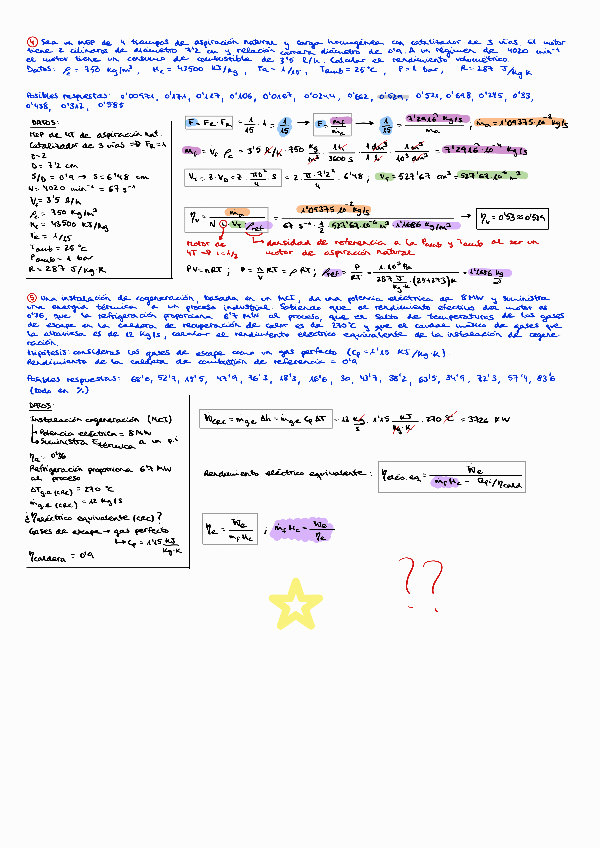 ④ Sea un MEP de 4 tiempos de aspiración natural y carga homogénea con catalizador de 3 vías. El motor
tiene 2 cilindros de diámetro 7'2 cm y relación carrera diámetro de 0'9. A un régimen de 4020 min⁻¹
el motor tiene un consumo de combustible de 3'5 l/h. Calcular el rendimiento volumétrico.
Datos: ρf = 750 kg/m³, Hc = 43500 KJ/kg, Fe = 1/15, Tamb = 25°C, P = 1 bar, R = 287 J/kg K
Posibles respuestas: 0'00571, 0'171, 0'167, 0'106, 0'0167, 0'0244, 0'662, 0'529, 0'521, 0'698, 0'285, 0'33,
0'438, 0'312, 0'585
DATOS:
MEP de 4T de aspiración nat.
Catalizador de 3 vías → FR=1
z=2
D = 7'2 cm
S/D = 0'9 → S = 6'48 cm
N = 4020 min⁻¹ = 67 s⁻¹
V̇f = 3'5 l/h
ρf = 750 kg/m³
Hc = 43500 KJ/kg
Fe = 1/15
Tamb = 25°C
Pamb = 1 bar
R = 287 J/kg·K
F = Fe · FR = 1/15 · 1 = 1/15 → F = ṁf/ṁa → 1/15 = 7'2916·10⁻⁴ kg/s / ṁa ; ṁa = 1'09375·10⁻² kg/s
ṁf = V̇f · ρf = 3'5 l/h · 750 kg/m³ · 1h/3600 s · 1 dm³/1 l · 1 m³/10³ dm³ = 7'2916·10⁻⁴ kg/s
VT = z · VD = z · πD²/4 · S = 2 · π·7'2²/4 · 6'48 ; VT = 527'67 cm³ = 527'67·10⁻⁶ m³
ηv = ṁa / N · i · VT · ρref = 1'09375·10⁻² kg/s / 67 s⁻¹ · 1/2 · 527'67·10⁻⁶ m³ · 1'1686 kg/m³ → ηv = 0'53 ≈ 0'529
Motor de
4T → i = 1/2
densidad de referencia a la Pamb y Tamb al ser un
motor de aspiración natural
PV = nRT ; P = n/V RT = ρRT ; ρref = P/RT = 1·10⁵ Pa / 287 J/kg·K · (25+273)K = 1'1686 kg/m³
⑤ Una instalación de cogeneración, basada en un MCI, da una potencia eléctrica de 8 MW y suministra
una energía térmica a un proceso industrial. Sabiendo que el rendimiento efectivo del motor es
0'36, que la refrigeración proporciona 6'7 MW al proceso, que el salto de temperaturas de los gases
de escape en la caldera de recuperación de calor es de 270°C y que el caudal másico de gases que
la atraviesa es de 12 kg/s, calcular el rendimiento eléctrico equivalente de la instalación de cogene-
ración.
Hipótesis: considerar los gases de escape como un gas perfecto (Cp = 1'15 KJ/kg·K)
Rendimiento de la caldera de combustión de referencia = 0'9
Posibles respuestas: 68'0, 52'7, 15'5, 47'9, 76'3, 18'3, 16'6, 30, 43'7, 38'2, 63'5, 34'9, 72'3, 57'4, 83'6
(todo en %)
DATOS:
Instalación cogeneración (MCI)
Potencia eléctrica = 8 MW
Suministra E térmica a un p.i
ηe = 0'36
Refrigeración proporciona 6'7 MW
al proceso
ΔTg.e (CRC) = 270 °C
ṁg.e (CRC) = 12 kg/s
¿ηeléctrico equivalente (CRC)?
Gases de escape → gas perfecto
↳ Cp = 1'15 KJ/kg·K
ηcaldera = 0'9
ẆCRC = ṁg.e Δh = ṁg.e Cp ΔT = 12 kg/s · 1'15 KJ/kg·K · 270 °C = 3726 KW
Rendimiento eléctrico equivalente: ηeléc.eq = Ẇe / ṁf Hc - Q̇pi/ηcald
ηe = Ẇe / ṁf Hc ; ṁf Hc = Ẇe / ηe
??